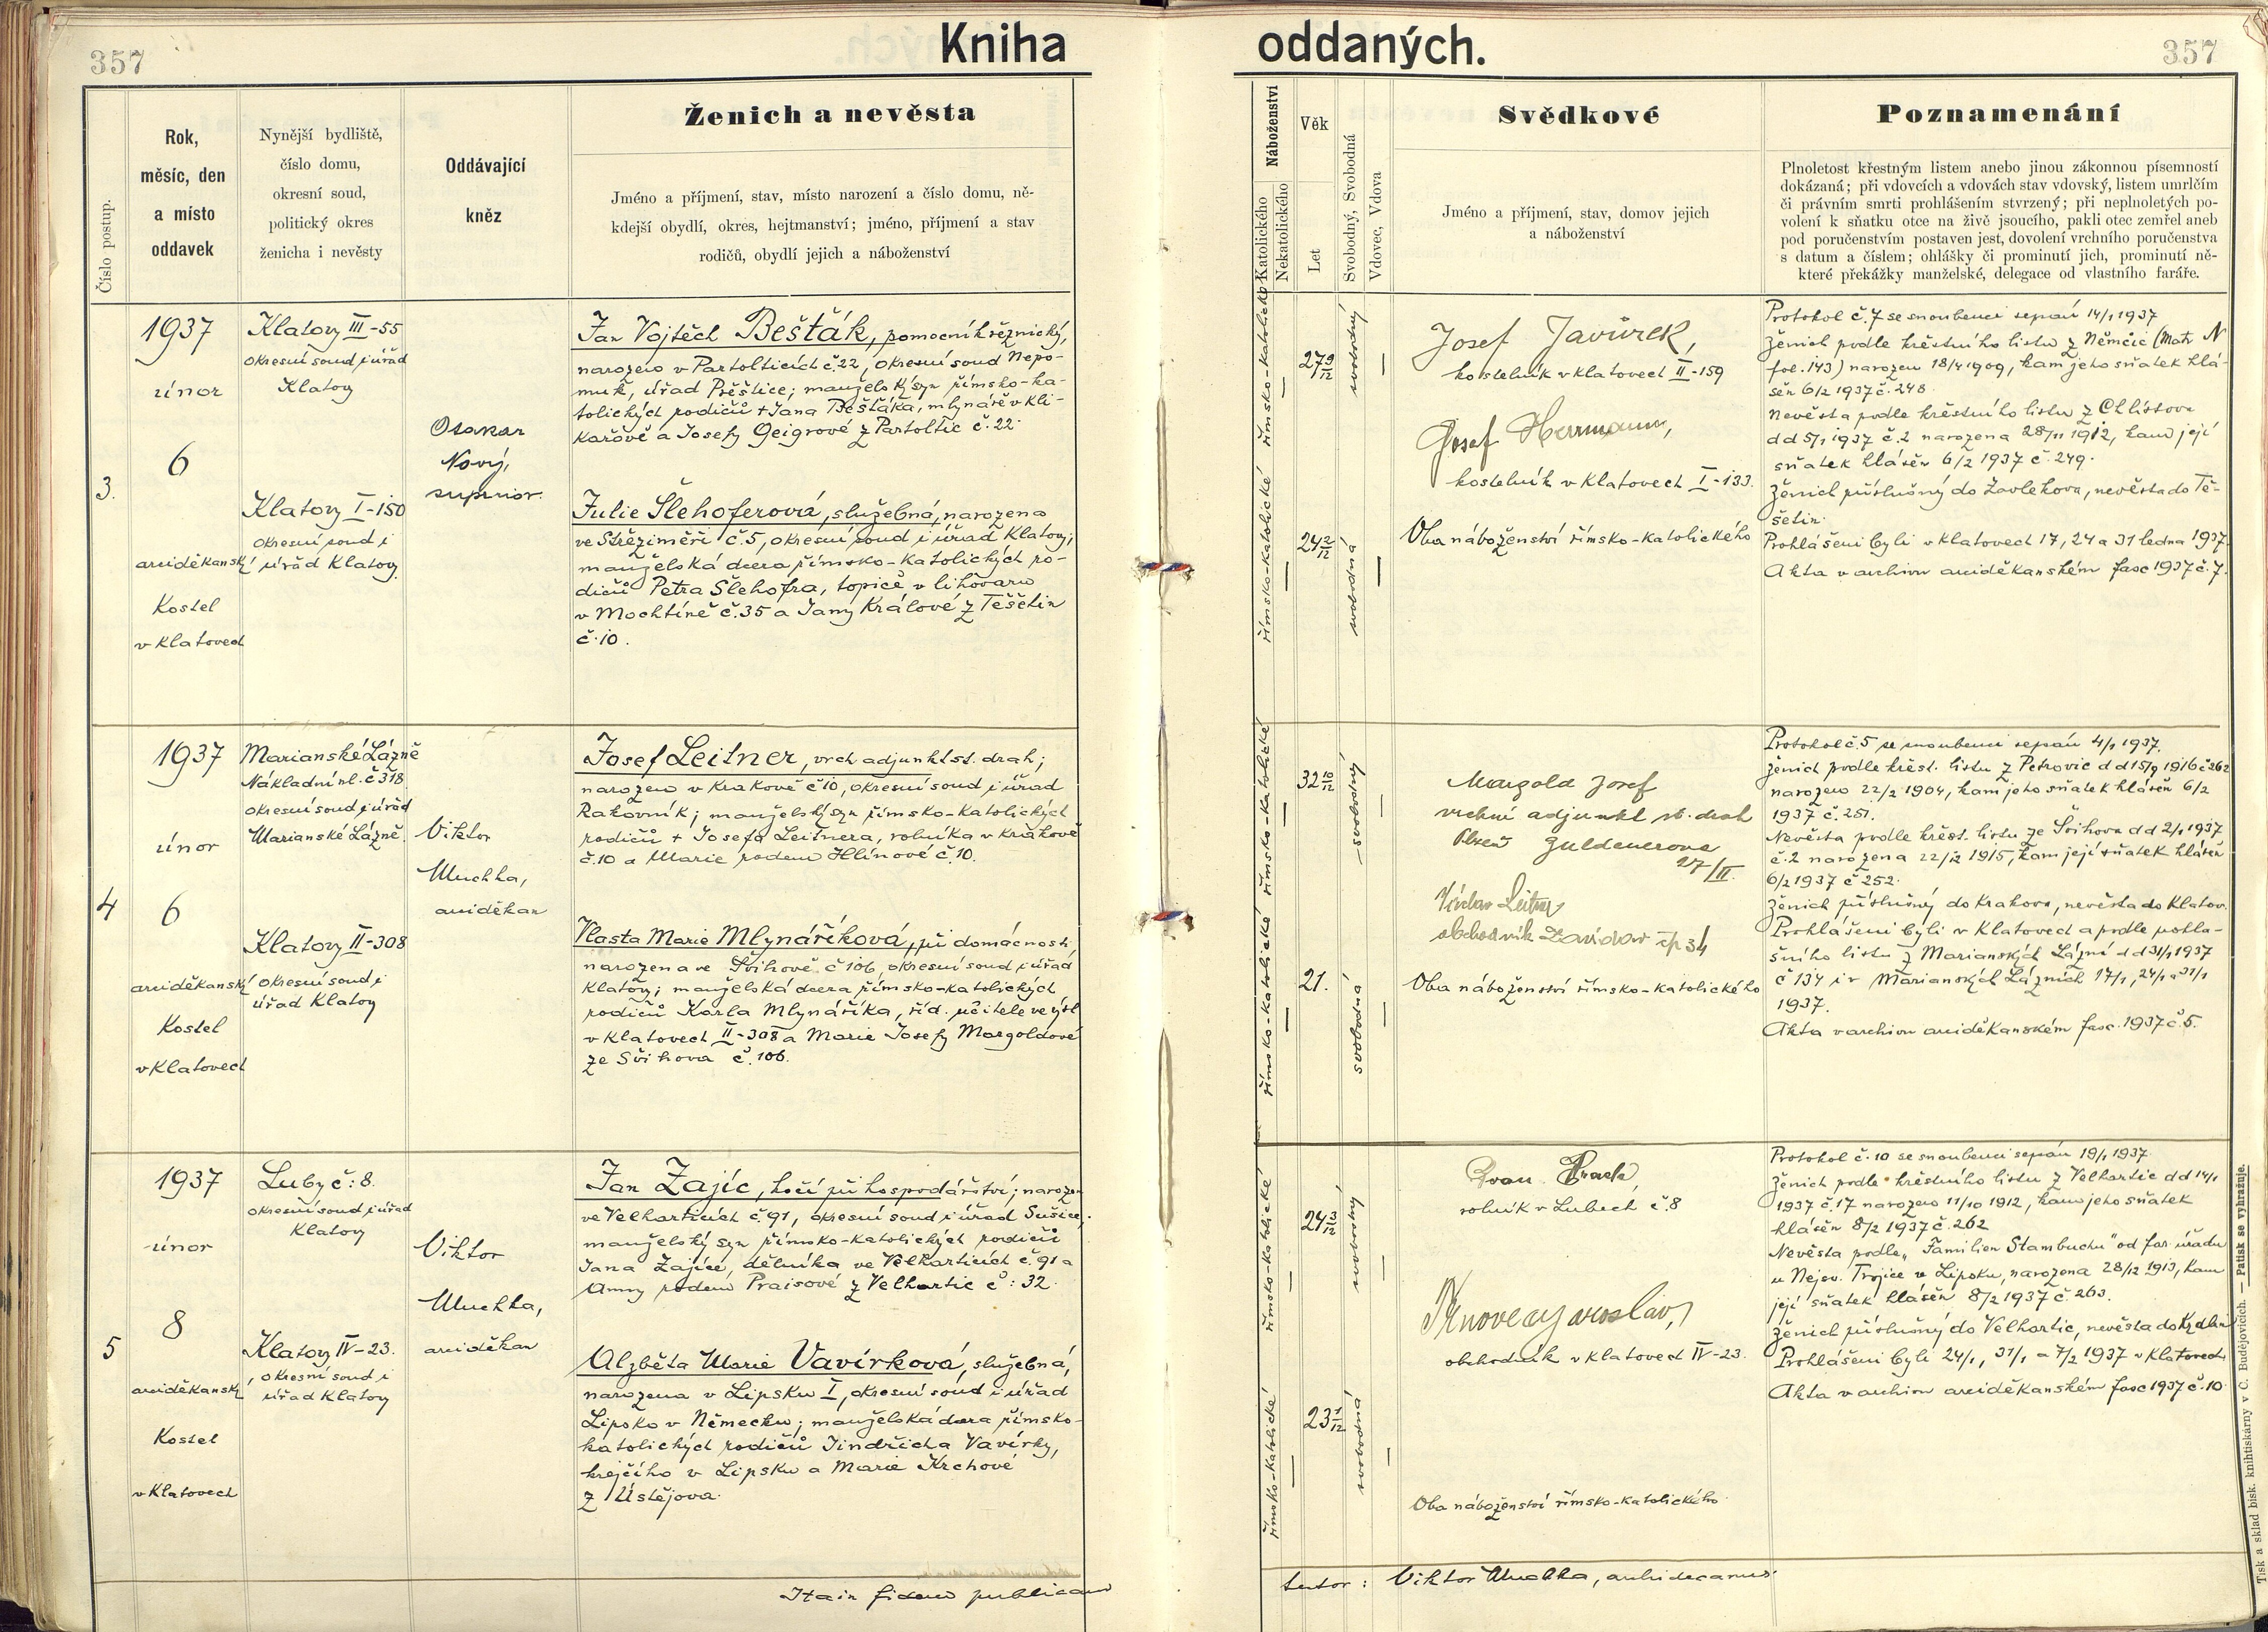 357
Kniha oddaných.
357
Číslo postup.
Rok,
měsíc, den
a místo
oddavek
Nynější bydliště,
číslo domu,
okresní soud,
politický okres
ženicha i nevěsty
Oddávající
kněz
Ženich a nevěsta
Jméno a příjmení, stav, místo narození a číslo domu, ně-
kdejší obydlí, okres, hejtmanství; jméno, příjmení a stav
rodičů, obydlí jejich a náboženství
Náboženství
Katolického
Nekatolického
Věk
Let
Svobodný, Svobodná
Vdovec, Vdova
Svědkové
Jméno a příjmení, stav, domov jejich
a náboženství
Poznamenání
Plnoletost křestným listem anebo jinou zákonnou písemností
dokázaná; při vdovcích a vdovách stav vdovský, listem umrlčím
či právním smrti prohlášením stvrzený; při neplnoletých po-
volení k sňatku otce na živě jsoucího, pakli otec zemřel aneb
pod poručenstvím postaven jest, dovolení vrchního poručenstva
s datum a číslem; ohlášky či prominutí jich, prominutí ně-
které překážky manželské, delegace od vlastního faráře.
3.
1937
únor
6
arciděkanský
Kostel
v Klatovech
Klatovy III-55
okresní soud i úřad
Klatovy
Klatovy I-150
okresní soud i
úřad Klatovy
Otakar
Nový,
superior.
Jan Vojtěch Bešťák, pomocník řeznický,
narozen v Partolticích č. 22, okresní soud Nepo-
muk, úřad Přěštice; manželský syn římsko-ka-
tolických rodičů + Jana Bešťáka, mlynáře v Kli-
kařově a Josefy Geigrové z Partoltic č. 22.
Julie Šlehoferová, služebná, narozena
ve Střeziměři č. 5, okresní soud i úřad Klatovy;
manželská dcera římsko-katolických ro-
dičů Petra Šlehofra, topiče v lihovaru
v Mochtíně č. 35 a Jany Králové z Těšetin
č. 10.
římsko-katolické
27 9/12
svobodný
římsko-katolické
24 2/12
svobodná
Josef Javůrek,
kostelník v Klatovech II-159
Josef Herrmann,
kostelník v Klatovech I-133.
Oba náboženství římsko-katolického
Protokol č. 7 se snoubenci sepsán 14/1 1937
Ženich podle křestního listu z Němčic (Matr N
fol. 143) narozen 18/4 1909, kam jeho sňatek hlá-
šen 6/2 1937 č. 248.
Nevěsta podle křestního listu z Chlistova
dd 5/1 1937 č. 2 narozena 28/11 1912, kam její
sňatek hlášen 6/2 1937 č. 249.
Ženich příslušný do Zavlekova, nevěsta do Tě-
šetin.
Prohlášeni byli v Klatovech 17, 24 a 31 ledna 1937.
Akta v archivu arciděkanském fasc 1937 č. 7.
4
1937
únor
6
arciděkanský
Kostel
v Klatovech
Marianské Lázně
Nákladní ul. č 318
okresní soud i úřad
Marianské Lázně.
Klatovy II-308
okresní soud i
úřad Klatovy
Viktor
Muchka,
arciděkan
Josef Leitner, vrch adjunkt st. drah;
narozen v Krakově č 10, okresní soud i úřad
Rakovník; manželský syn římsko-katolických
rodičů + Josefa Leitnera, rolníka v Krakově
č. 10 a Marie rodem Hlínové č. 10.
Vlasta Marie Mlynáříková, při domácnosti
narozena ve Švihově č 106, okresní soud i úřad
Klatovy; manželská dcera římsko-katolických
rodičů Karla Mlynáříka, říd. učitele ve výsl
v Klatovech II-308 a Marie Josefy Margoldové
ze Švihova č. 106.
římsko-katolické
32 10/12
svobodný
římsko-katolické
21.
svobodná
Margold Josef
vrchní adjunkt st. drah
Plzeň Guldenerova
27/II.
Václav Leitner
obchodník Zavidov čp 34
Oba náboženství římsko-katolického
Protokol č. 5 se snoubenci sepsán 4/1 1937.
Ženich podle křest. listu z Petrovic dd 15/9 1916 č 262
narozen 22/2 1904, kam jeho sňatek hlášen 6/2
1937 č. 251.
Nevěsta podle křest. listu ze Švihova dd 2/1 1937
č. 2 narozena 22/12 1915, kam její sňatek hlášen
6/2 1937 č 252.
Ženich příslušný do Krakova, nevěsta do Klatov.
Prohlášeni byli v Klatovech a podle prohla-
šního listu z Marianských Lázní dd 31/1 1937
č 134 i v Marianských Lázních 17/1, 24/1 a 31/1
1937.
Akta v archivu arciděkanském fasc. 1937 č. 5.
5
1937
únor
8
arciděkanský
Kostel
v Klatovech
Luby č: 8.
okresní soud i úřad
Klatovy
Klatovy IV-23.
okresní soud i
úřad Klatovy
Viktor
Muchka,
arciděkan
Jan Zajíc, kočí při hospodářství; narozen
ve Velharticích č. 91, okresní soud i úřad Sušice;
manželský syn římsko-katolických rodičů
Jana Zajíce, dělníka ve Velharticích č. 91 a
Anny rodem Praisové z Velhartic č: 32.
Alzběta Marie Vavírková, služebná,
narozena v Lipsku I, okresní soud i úřad
Lipsko v Německu; manželská dcera římsko-
katolických rodičů Jindřicha Vavírky,
krejčího v Lipsku a Marie Krchové
z Ústějova.
římsko-katolické
24 3/12
svobodný
římsko-katolické
23 1/12
svobodná
rolník v Lubech č. 8
obchodník v Klatovech IV-23.
Oba náboženství římsko-katolického
Protokol č. 10 se snoubenci sepsán 19/1 1937.
Ženich podle křestního listu z Velhartic dd 14/1
1937 č. 17 narozen 11/10 1912, kam jeho sňatek
hlášen 8/2 1937 č. 262
Nevěsta podle „Familien Stambuchu" od far. úřadu
u Nejsv. Trojice v Lipsku, narozena 28/12 1913, kam
její sňatek hlášen 8/2 1937 č. 263.
Ženich příslušný do Velhartic, nevěsta do
Prohlášeni byli 24/1, 31/1 a 7/2 1937 v Klatovech
Akta v archivu arciděkanském fasc 1937 č. 10.
Ita in fidem publicam
testor: Viktor Muchka, archidecanus
Tisk a sklad bisk. knihtiskárny v Č. Budějovicích. — Patisk se vyhražuje.